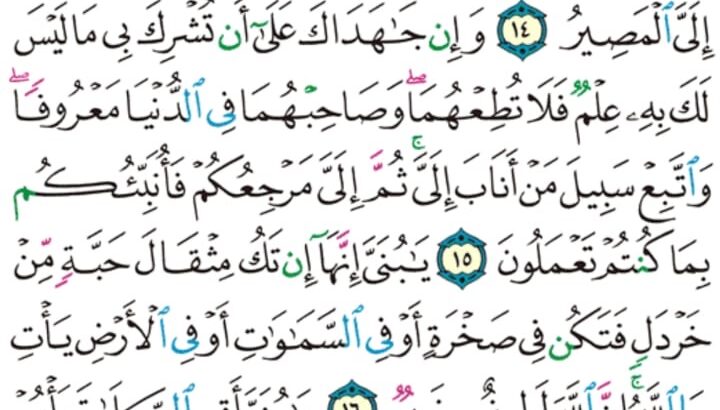 إِلَىَّ ٱلْمَصِيرُ ١٤ وَإِن جَـٰهَدَاكَ عَلَىٰٓ أَن تُشْرِكَ بِى مَا لَيْسَ
لَكَ بِهِۦ عِلْمٌ فَلَا تُطِعْهُمَا ۖ وَصَاحِبْهُمَا فِى ٱلدُّنْيَا مَعْرُوفًا ۖ
وَٱتَّبِعْ سَبِيلَ مَنْ أَنَابَ إِلَىَّ ۚ ثُمَّ إِلَىَّ مَرْجِعُكُمْ فَأُنَبِّئُكُم
بِمَا كُنتُمْ تَعْمَلُونَ ١٥ يَـٰبُنَىَّ إِنَّهَآ إِن تَكُ مِثْقَالَ حَبَّةٍ مِّنْ
خَرْدَلٍ فَتَكُن فِى صَخْرَةٍ أَوْ فِى ٱلسَّمَـٰوَٰتِ أَوْ فِى ٱلْأَرْضِ يَأْتِ
١٦